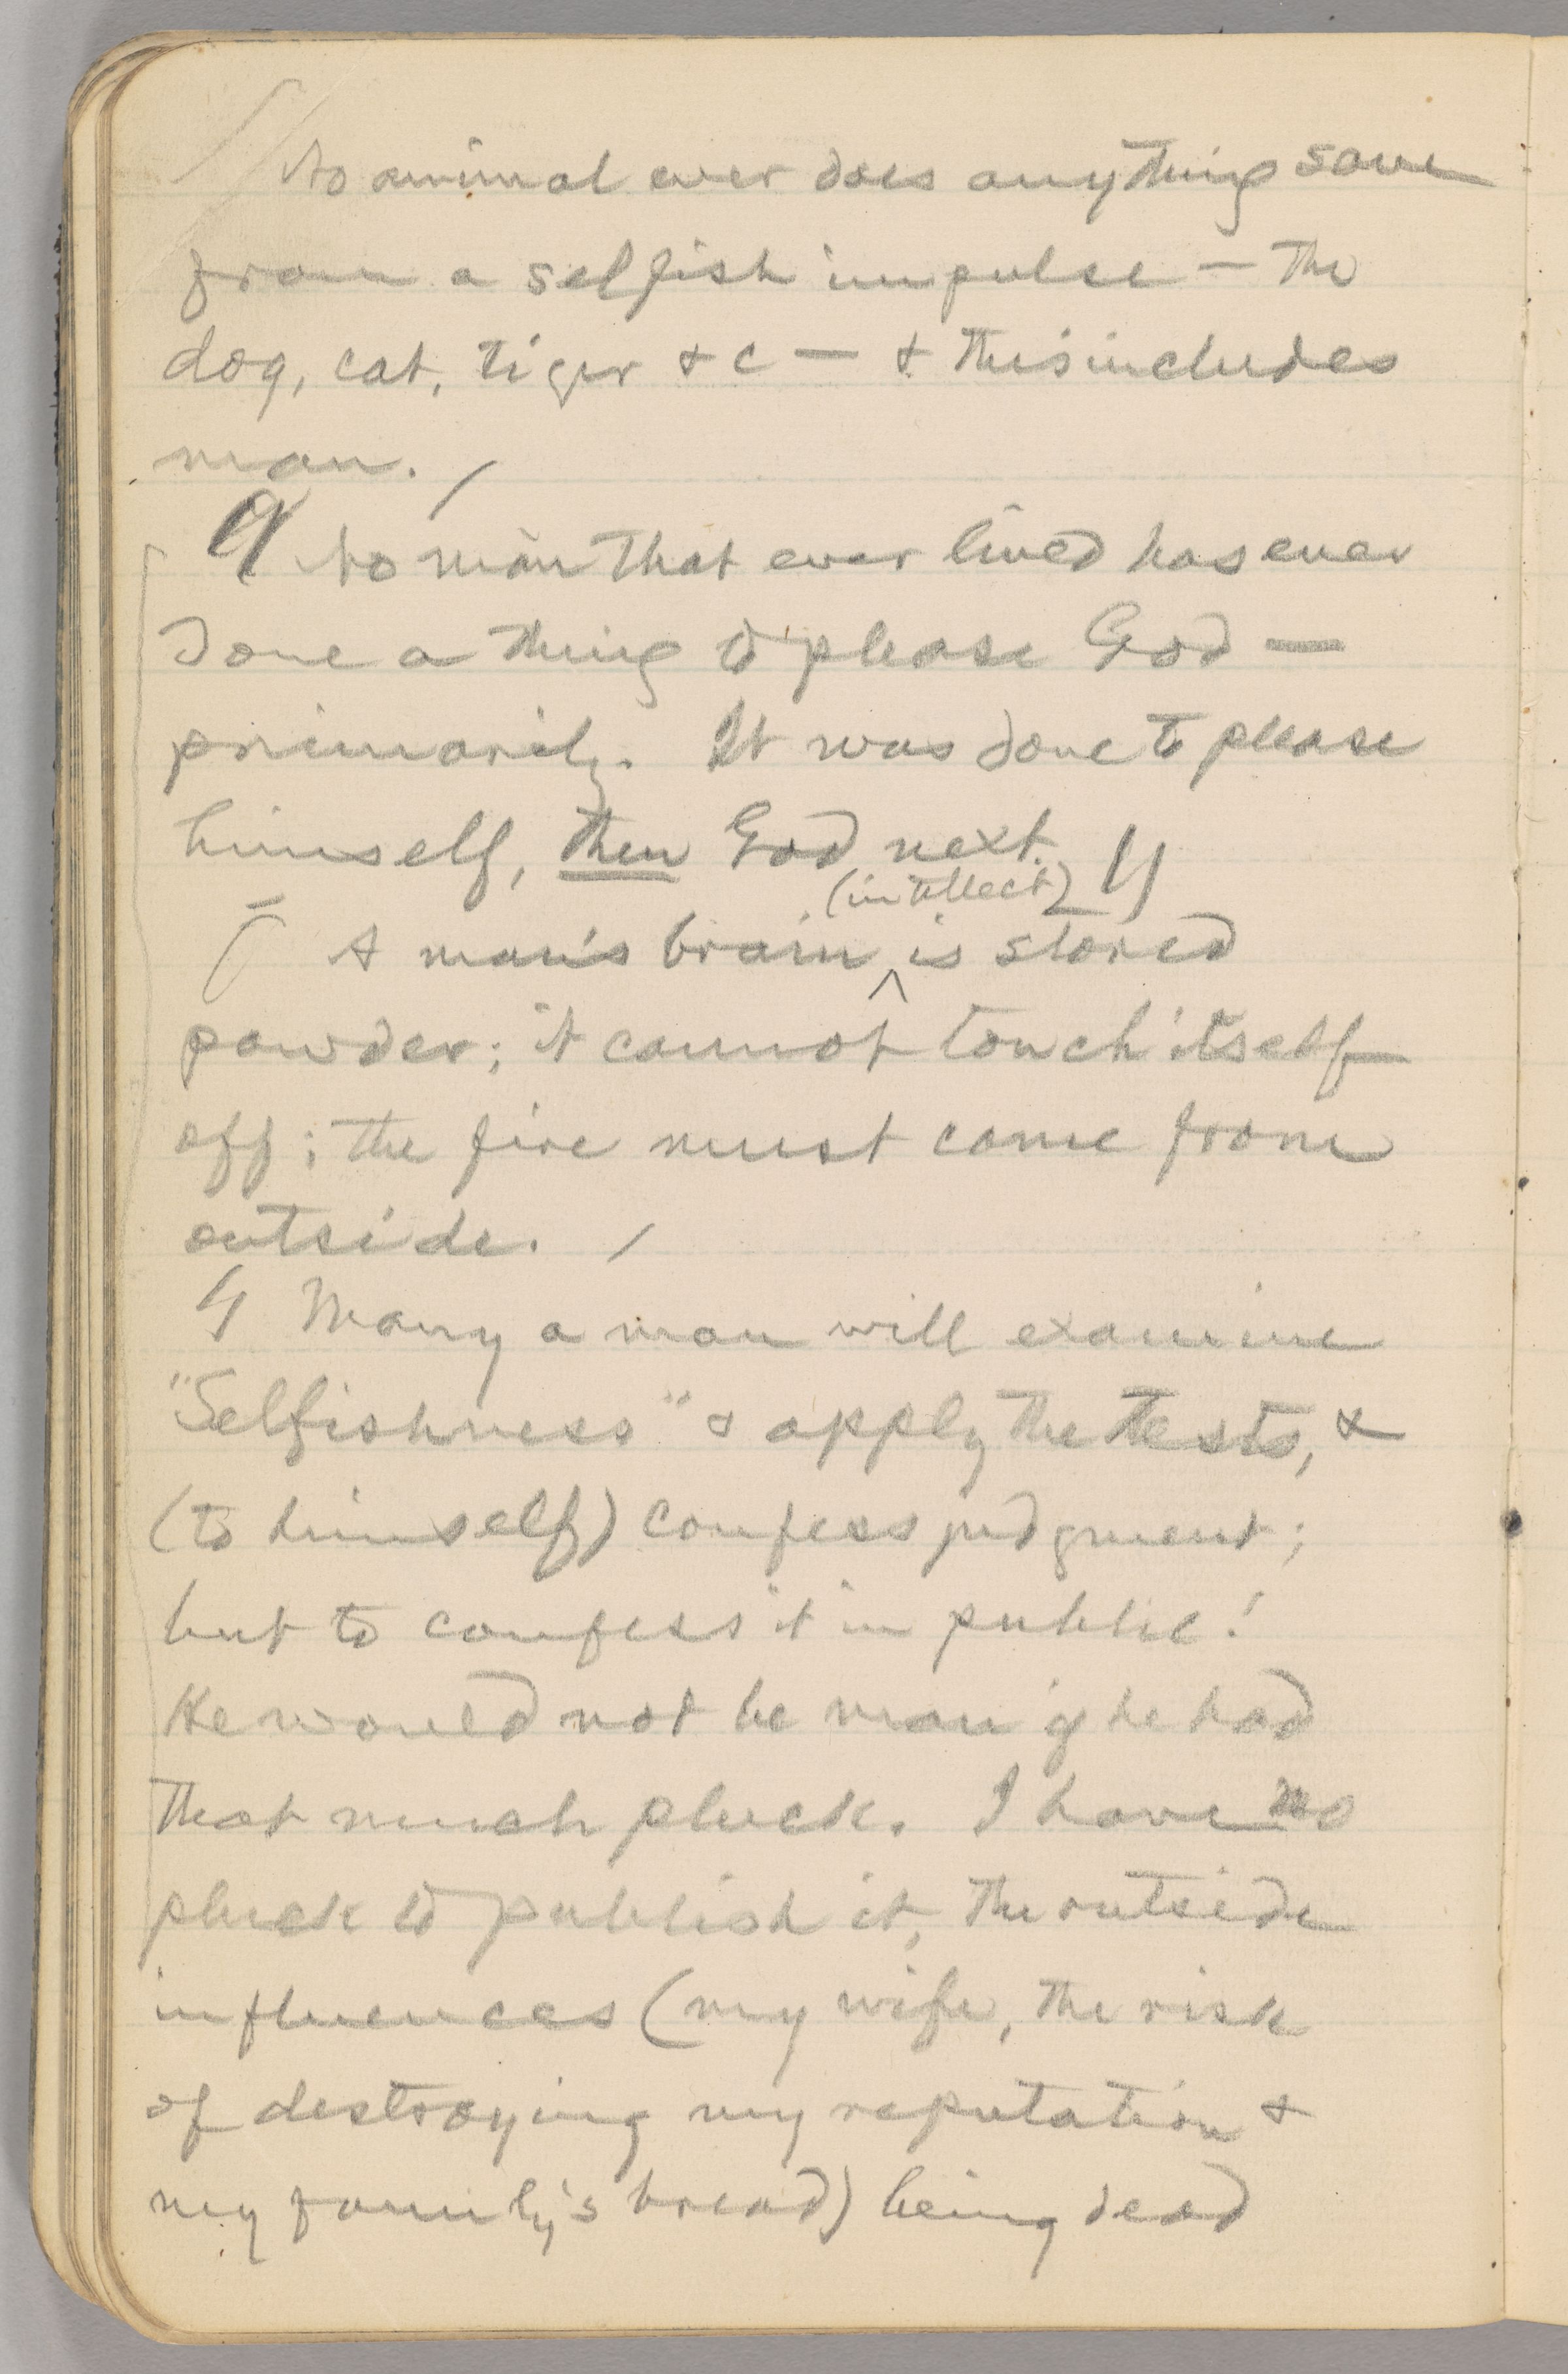 No animal ever does anything save
from a selfish impulse — the
dog, cat, tiger &c — & this includes
man. /
¶ No man that ever lived has ever
done a thing to please God —
primarily. It was done to please
himself, then God next.
(intellect)
A man's brain ^ is stored
powder; it cannot touch itself
off; the fire must come from
outside. /
¶ Many a man will examine
"Selfishness" & apply the tests, &
(to himself) confess judgment;
but to confess it in public!
He would not be man if he had
that much pluck. I have no
pluck to publish it, the outside
influences (my wife, the risk
of destroying my reputation &
my family's bread) being dead